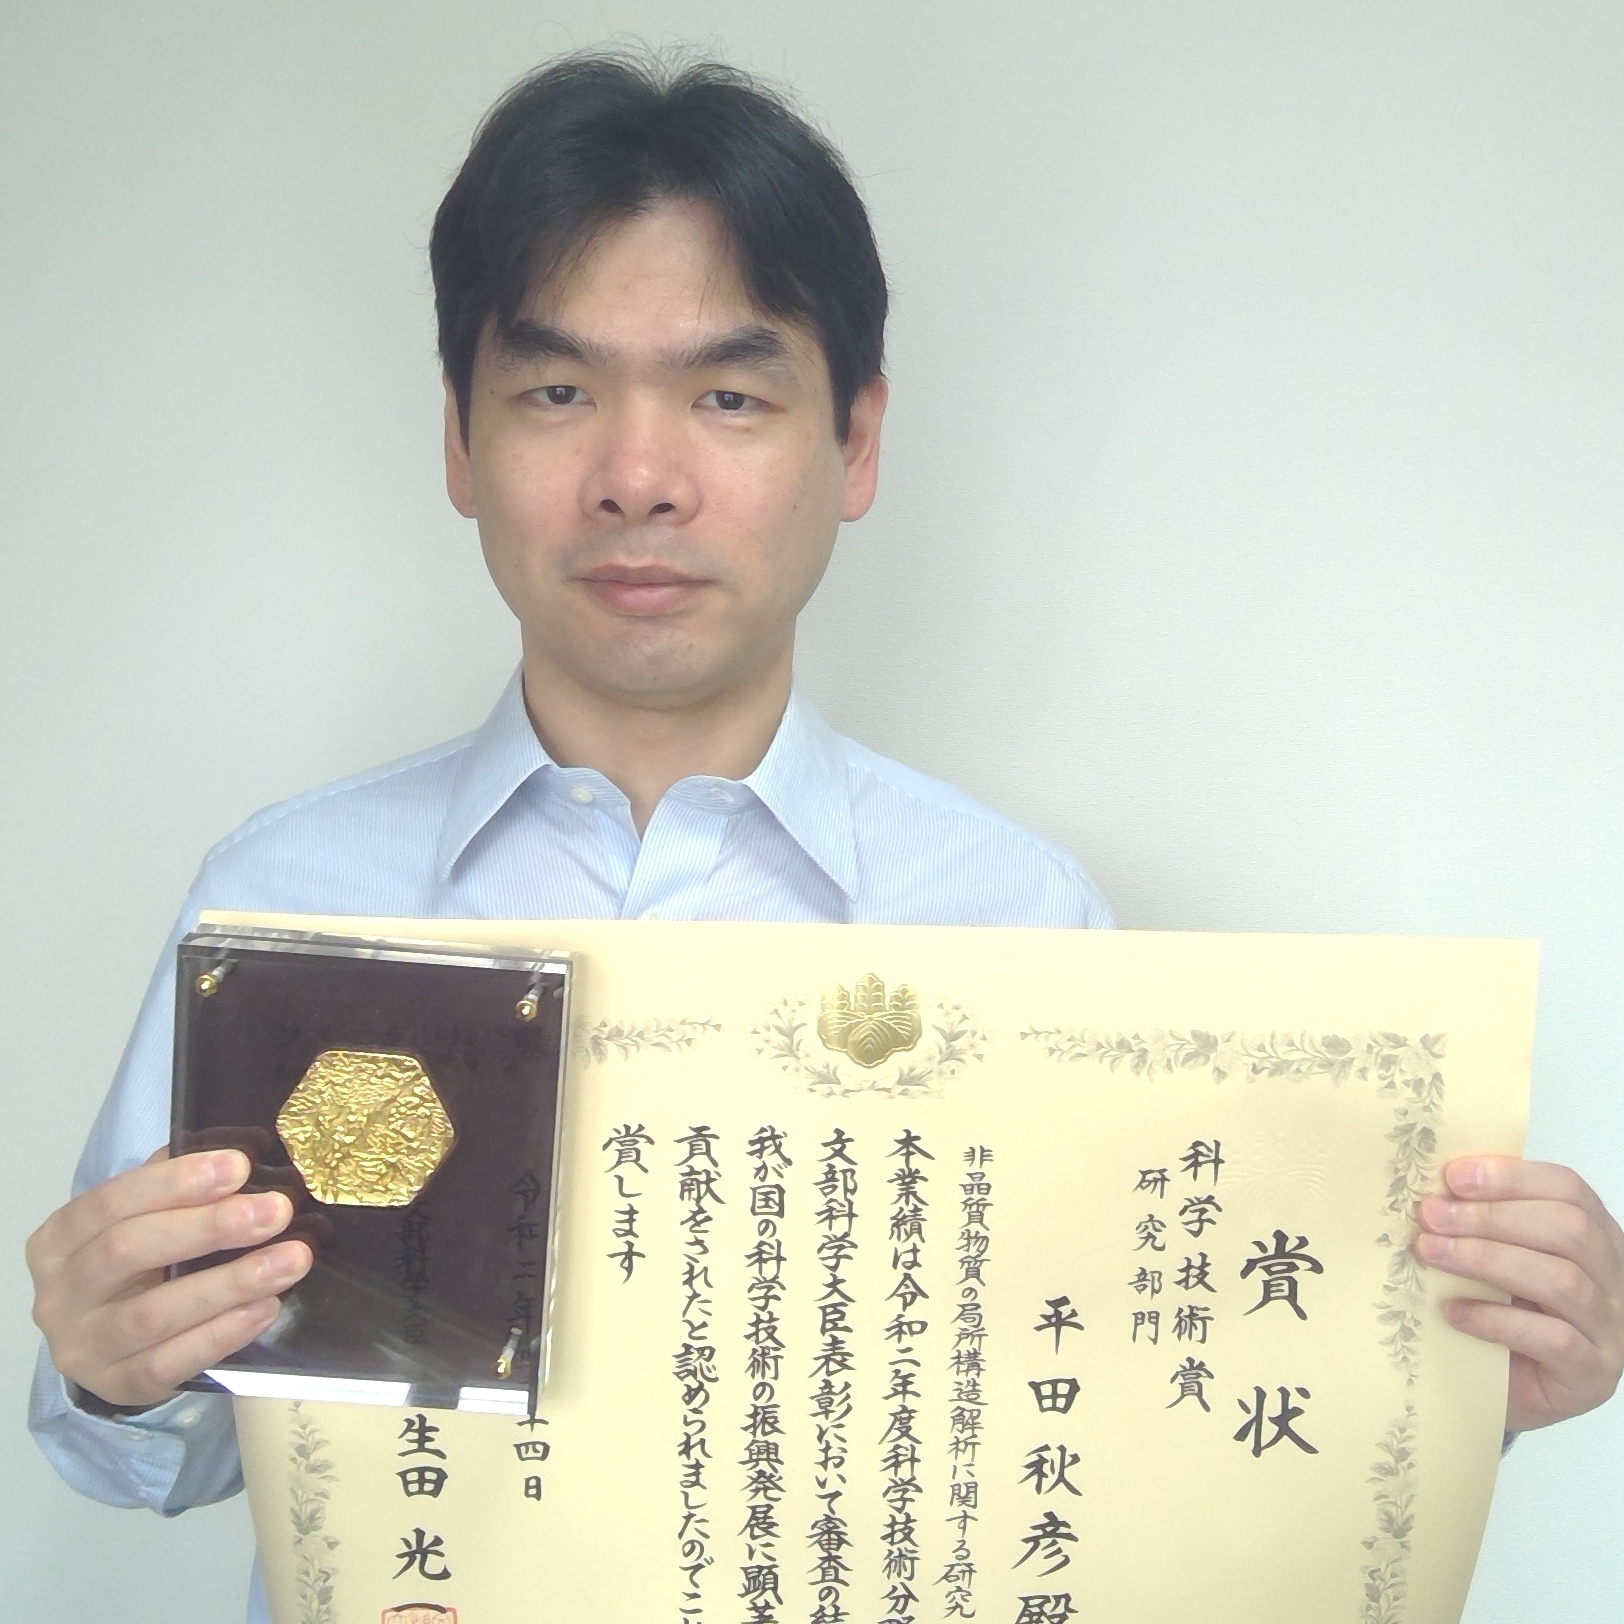 賞状
科学技術賞
研究部門
平田秋彦殿
非晶質物質の局所構造解析に関する研究
本業績は令和二年度科学技術分野
文部科学大臣表彰において審査の結
我が国の科学技術の振興発展に顕著
貢献をされたと認められましたのでこ
賞します
令和二年
十四日
文部科学大臣
生田光一